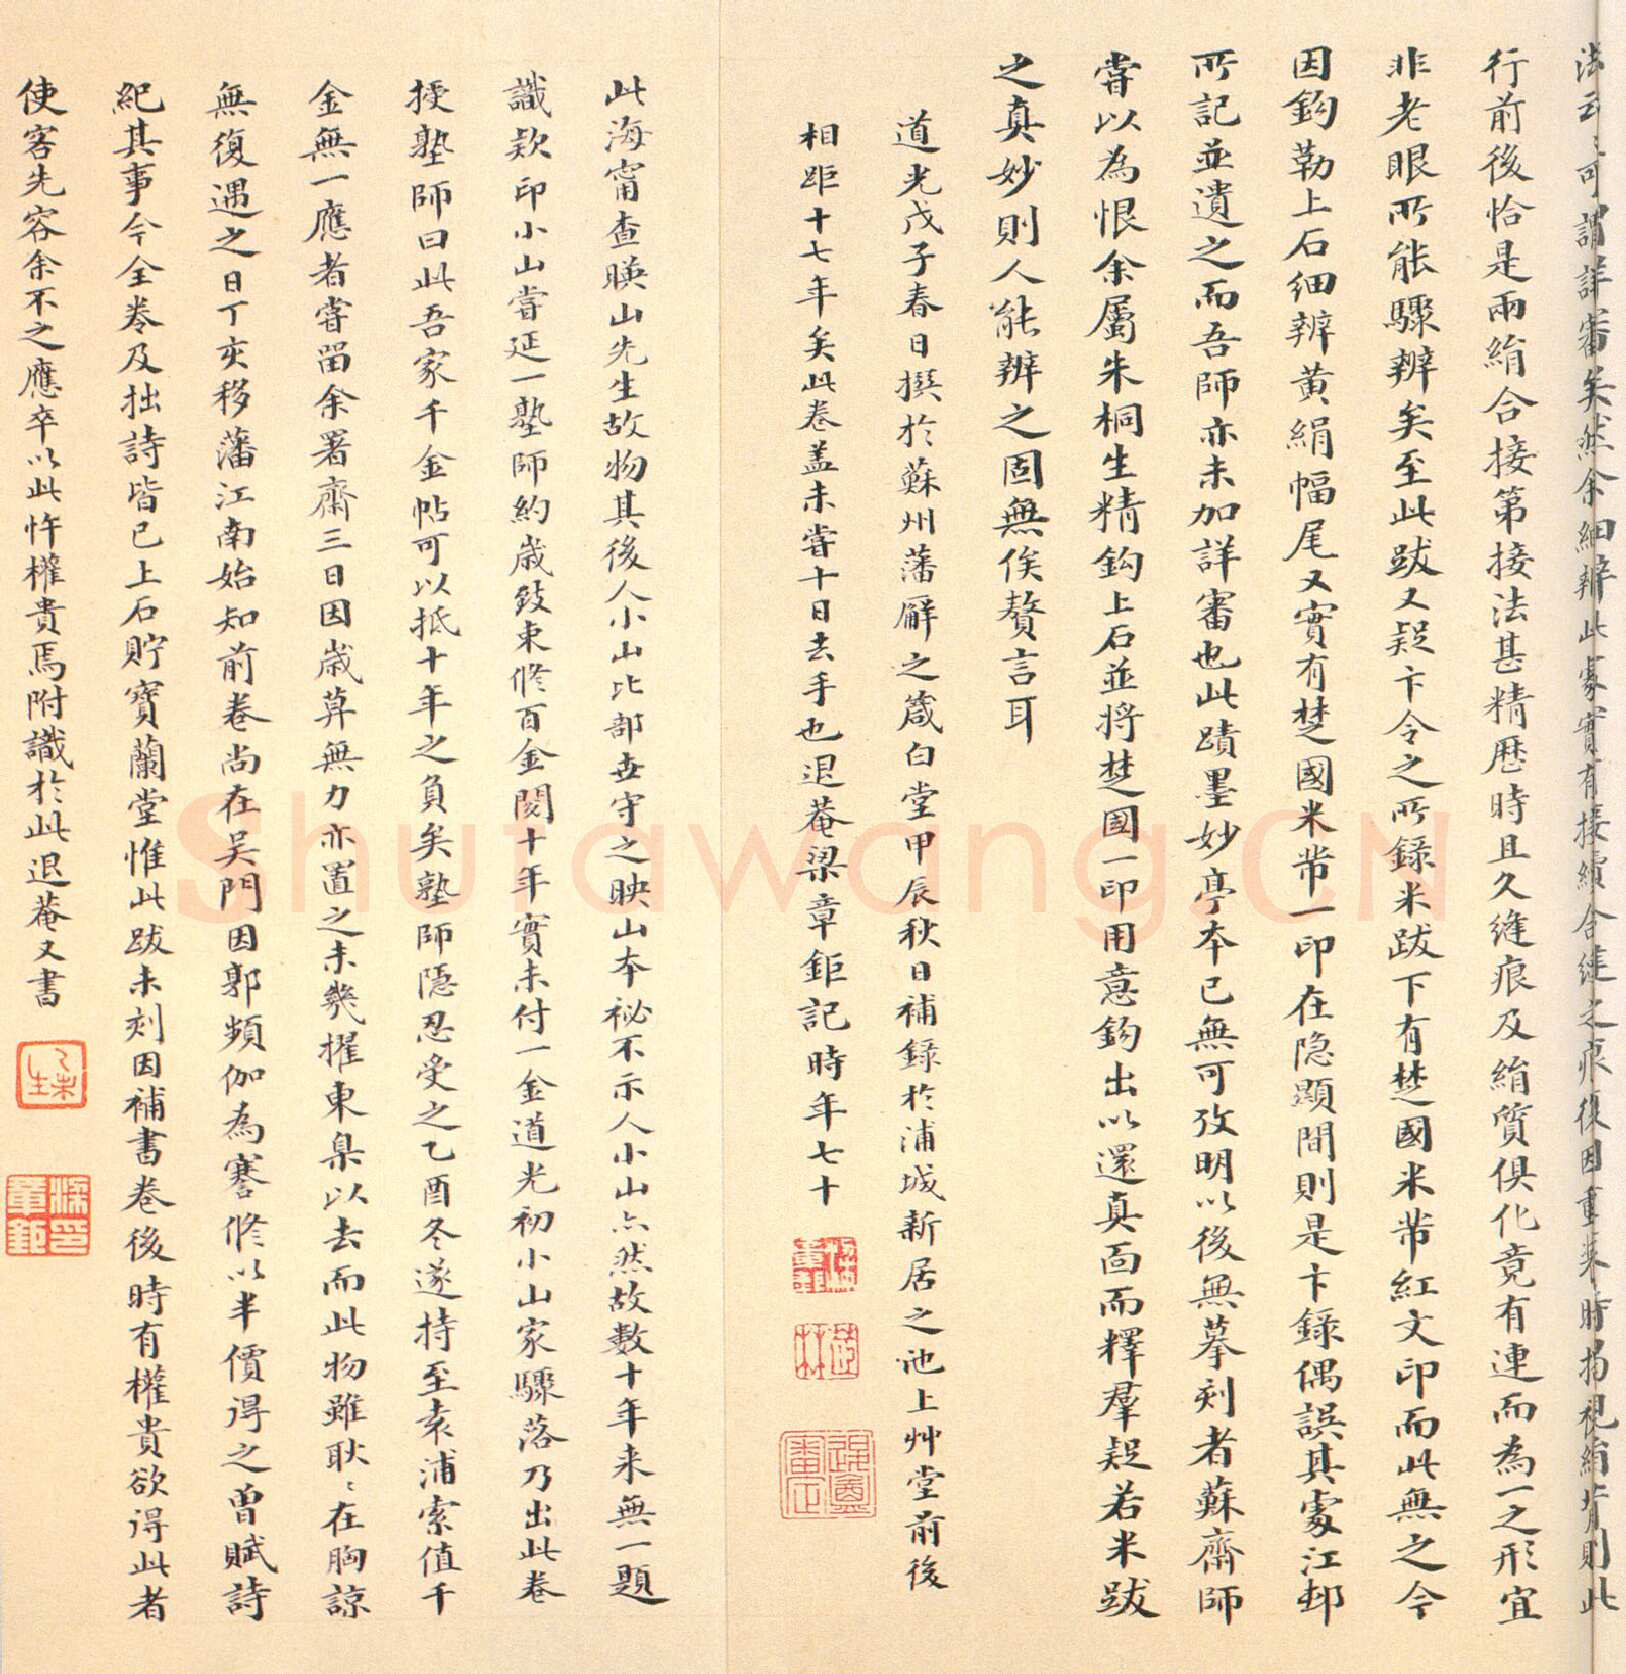 法云云可謂詳審矣然余細辨此處實有接續合縫之痕復因重裝時揭視絹背則此
行前後恰是兩絹合接第接法甚精歷時且久縫痕及絹質俱化竟有連而為一之形宜
非老眼所能驟辨矣至此跋又疑卞令之所錄米跋下有楚國米芾紅文印而此無之今
因鈎勒上石細辨黃絹幅尾又實有楚國米芾一印在隐顯間則是卞錄偶誤其處江邨
所記並遺之而吾師亦未加詳審也此蹟墨妙亭本已無可攷明以後無摹刻者蘇齋師
嘗以為恨余屬朱桐生精鈎上石並將楚國一印用意鈎出以還真面而釋羣疑若米跋
之真妙則人能辨之固無俟贅言耳
道光戊子春日撰於蘇州藩廨之箴白堂甲辰秋日補錄於浦城新居之池上艸堂前後
相距十七年矣此卷盖未嘗十日去手也退菴梁章鉅記時年七十
此海甯查暎山先生故物其後人小山比部世守之映山本秘不示人小山亦然故數十年来無一題
識欵印小山嘗延一塾師約歲致束脩百金閱十年實未付一金道光初小山家驟落乃出此卷
授塾師曰此吾家千金帖可以抵十年之負矣塾師隱忍受之乙酉冬遂持至袁浦索值千
金無一應者嘗留余署齋三日因歲莫無力亦置之未幾擢東臬以去而此物雖耿〻在胸諒
無復遇之日丁亥移藩江南始知前卷尚在吴門因郭頻伽為蹇脩以半價得之曾賦詩
紀其事今全卷及拙詩皆已上石貯寳蘭堂惟此跋未刻因補書卷後時有權貴欲得此者
使客先容余不之應卒以此忤權貴焉附識於此退菴又書
Shufawang.CN